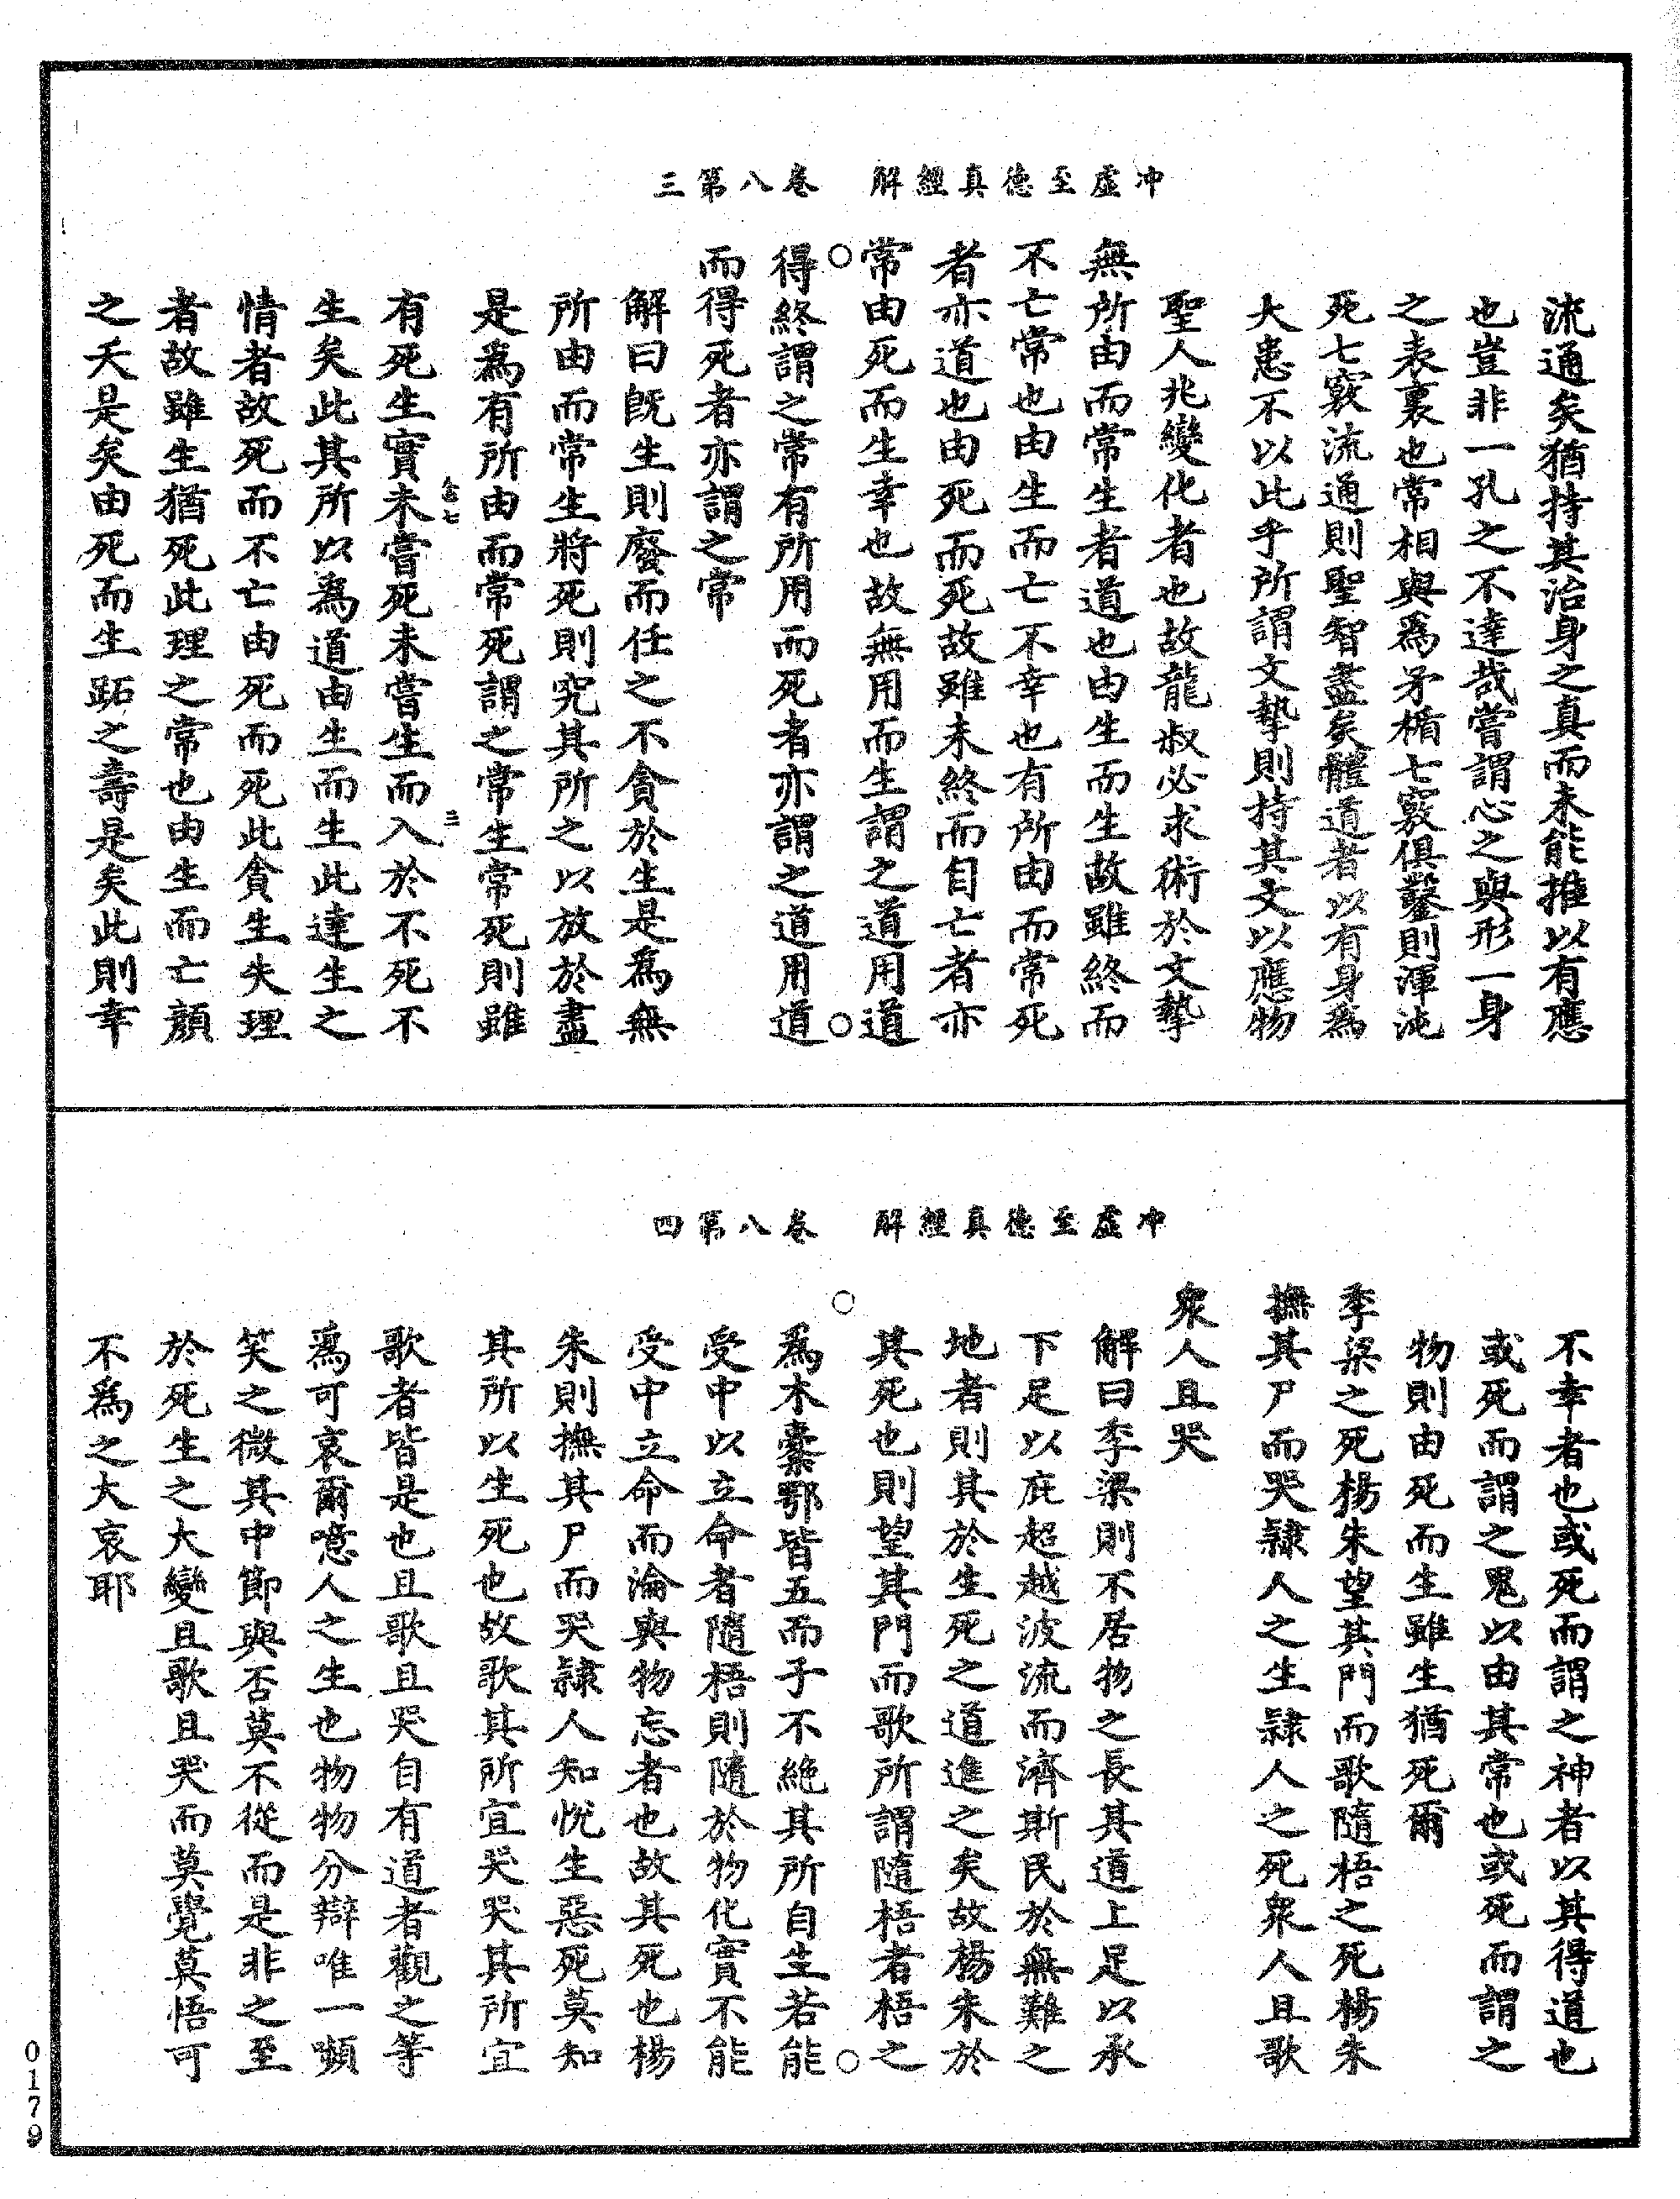 冲虛至德真經解　卷八第三
流通矣猶持其治身之真而未能推以有應
也豈非一孔之不達哉嘗謂心之與形一身
之表裏也常相與爲矛楯七竅俱鑿則渾沌
死七竅流通則聖智盡矣體道者以有身爲
大患不以此乎所謂文摯則持其文以應物
聖人兆變化者也故龍叔必求術於文摯
無所由而常生者道也由生而生故雖終而
不亡常也由生而亡不幸也有所由而常死
者亦道也由死而死故雖未終而自亡者亦
常由死而生幸也故無用而生謂之道用道
得終謂之常有所用而死者亦謂之道用道
而得死者亦謂之常
解曰旣生則廢而任之不貪於生是爲無
所由而常生將死則究其所之以放於盡
是爲有所由而常死謂之常生常死則雖
有死生實未嘗死未嘗生而入於不死不
生矣此其所以爲道由生而生此達生之
情者故死而不亡由死而死此貪生失理
者故雖生猶死此理之常也由生而亡顏
之夭是矣由死而生跖之壽是矣此則幸
三
冲虛至德真經解　卷八第四
不幸者也或死而謂之神者以其得道也
或死而謂之鬼以由其常也或死而謂之
物則由死而生雖生猶死爾
季梁之死楊朱望其門而歌隨梧之死楊朱
撫其尸而哭隸人之生隸人之死衆人且歌
衆人且哭
解曰季梁則不居物之長其道上足以承
下足以庇超越波流而濟斯民於無難之
地者則其於生死之道進之矣故楊朱於
其死也則望其門而歌所謂隨梧者梧之
爲木櫜鄂皆五而子不絶其所自生若能
受中以立命者隨梧則隨於物化實不能
受中立命而淪與物忘者也故其死也楊
朱則撫其尸而哭隸人知悅生惡死莫知
其所以生死也故歌其所宜哭哭其所宜
歌者皆是也且歌且哭自有道者觀之等
爲可哀爾噫人之生也物物分辯唯一嚬
笑之微其中節與否莫不從而是非之至
於死生之大變且歌且哭而莫覺莫悟可
不爲之大哀耶
0179